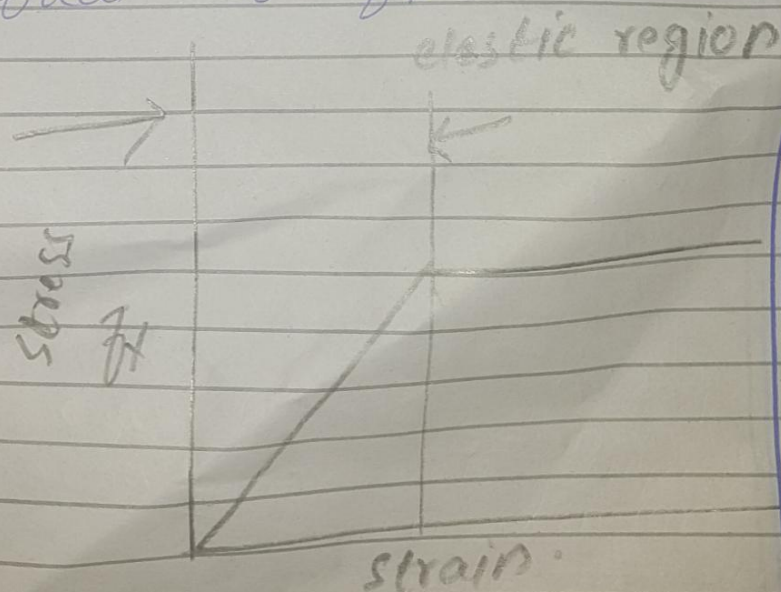 elastic region
stress
strain.